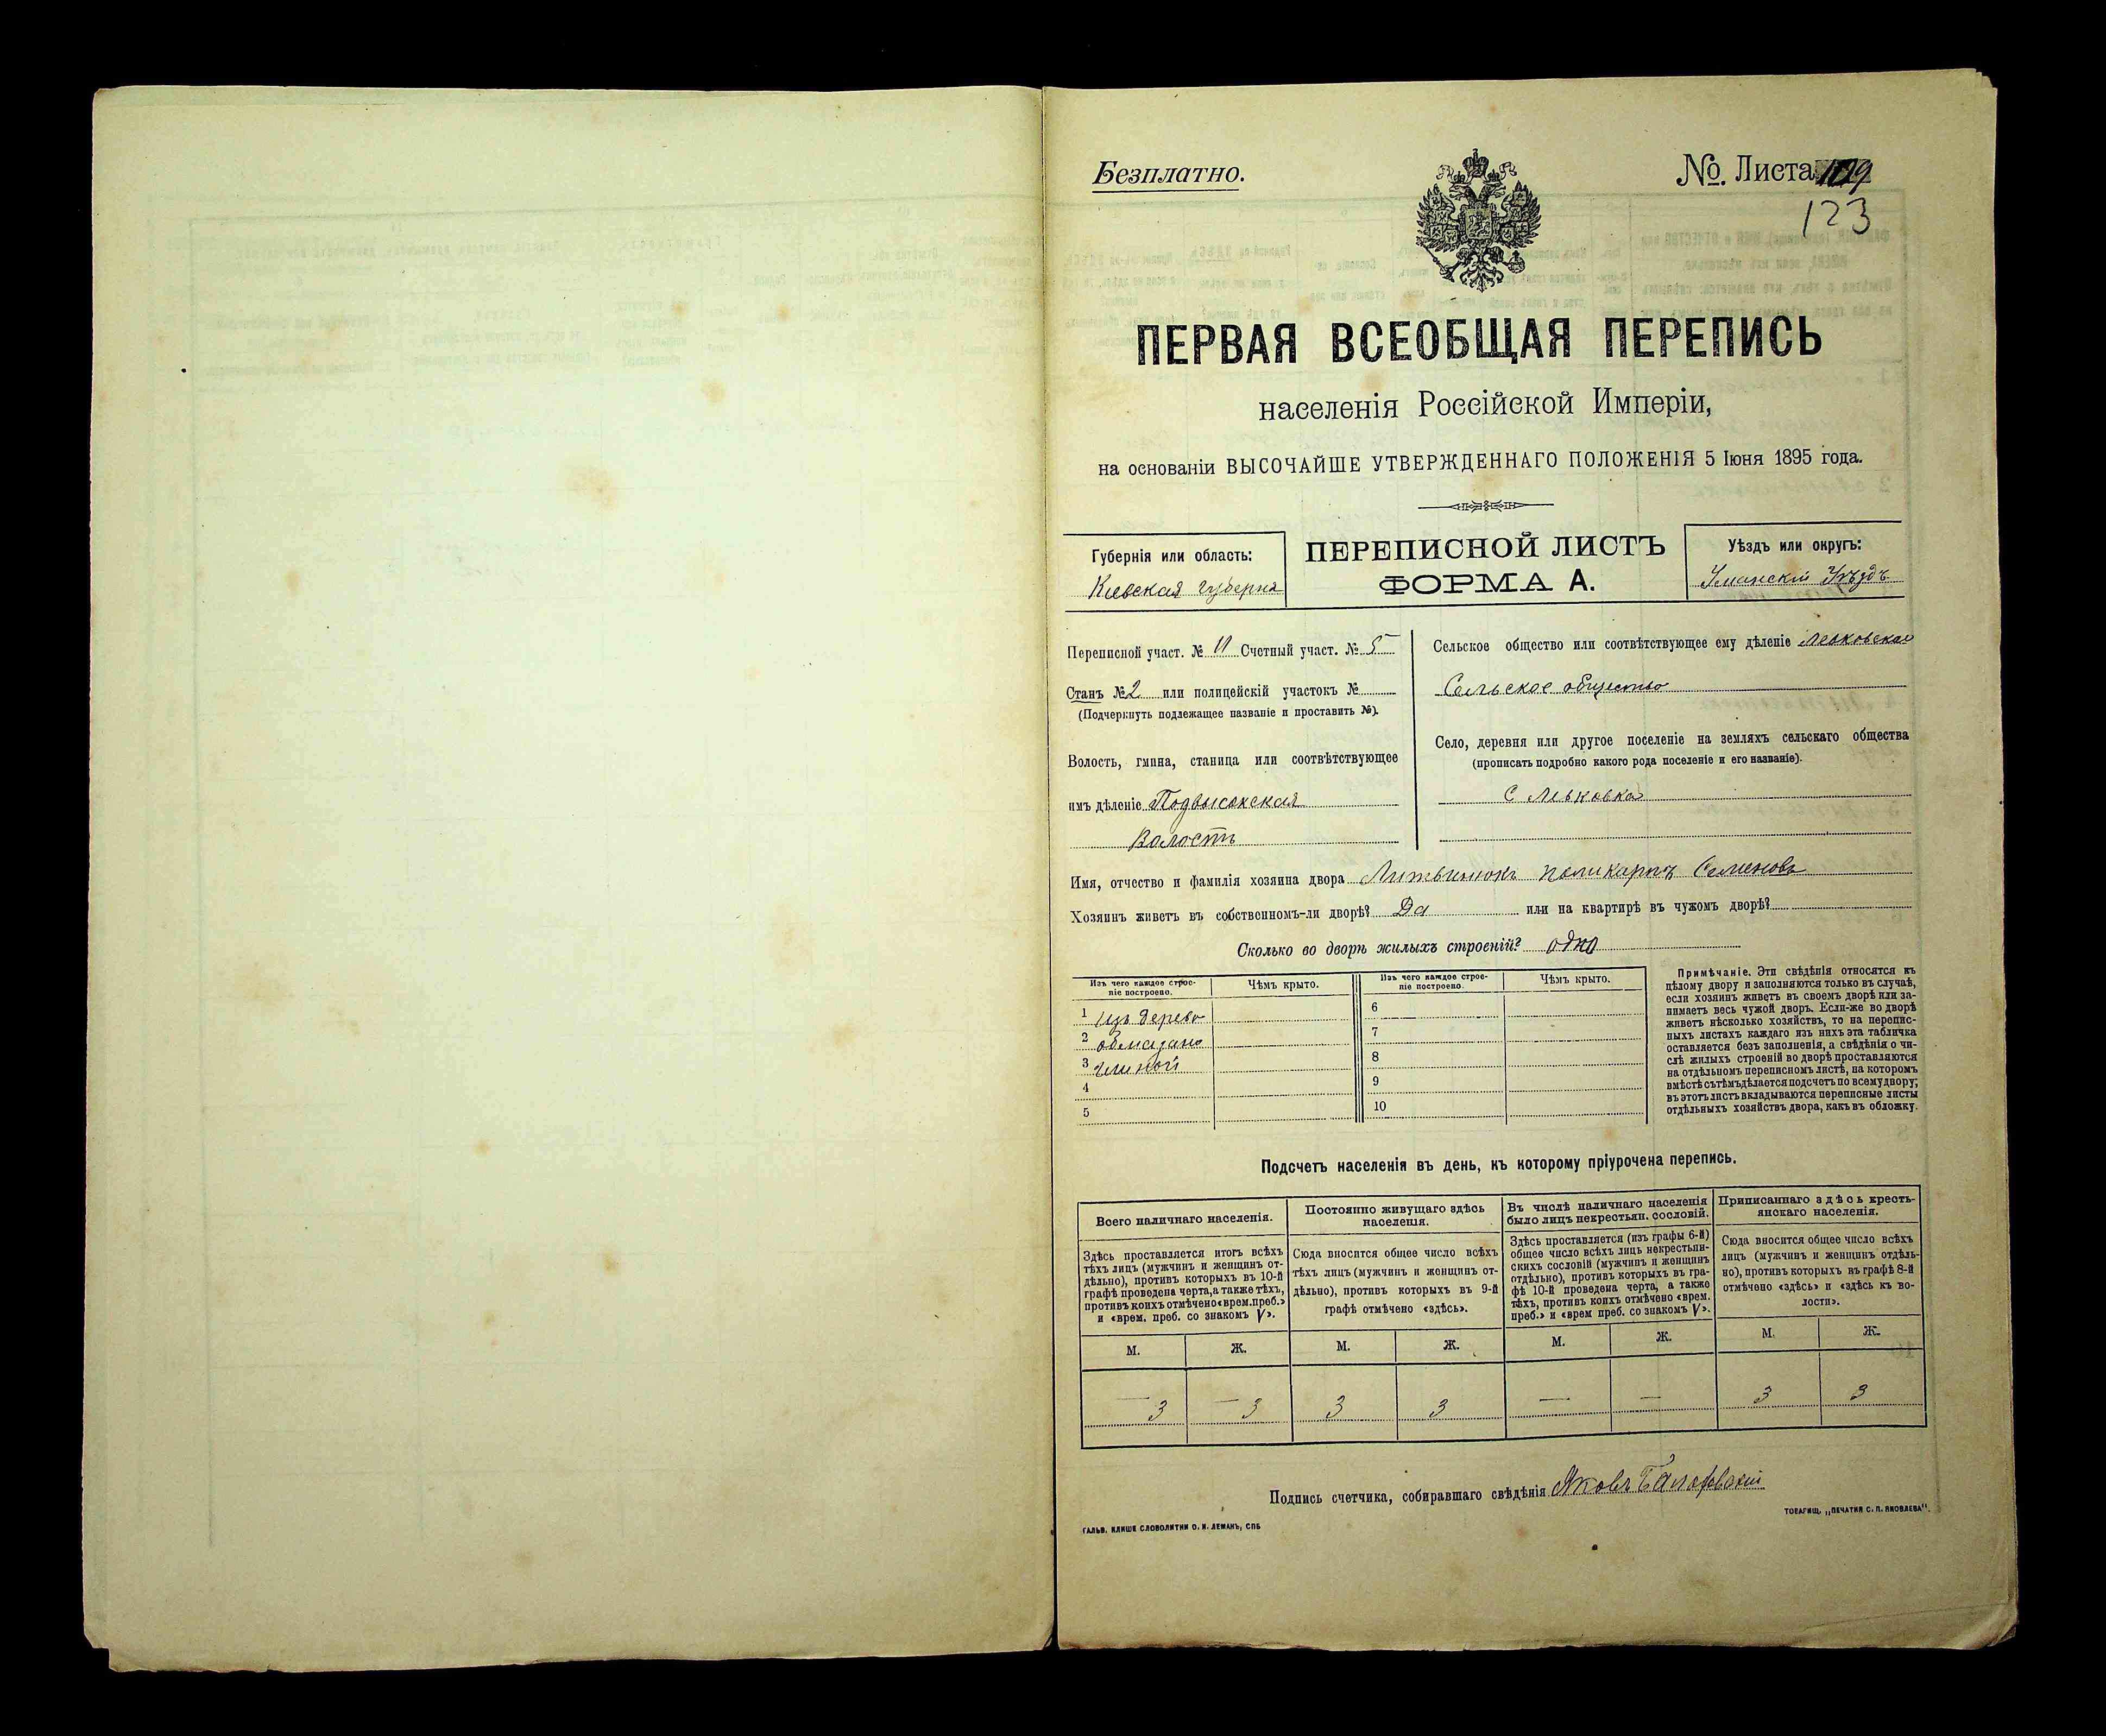 Безплатно.
№ Листа 119
123
ПЕРВАЯ ВСЕОБЩАЯ ПЕРЕПИСЬ
населенія Россійской Имперіи,
на основаніи ВЫСОЧАЙШЕ УТВЕРЖДЕННАГО ПОЛОЖЕНІЯ 5 Іюня 1895 года.
Губернія или область:
Киевская губерня
ПЕРЕПИСНОЙ ЛИСТЪ
ФОРМА А.
Уѣздъ или округъ:
Уманскій Уѣздъ
Переписной участ. № 11 Счетный участ. № 5
Станъ № 2 или полицейскій участокъ №
(Подчеркнуть подлежащее названіе и проставить №).
Волость, гмина, станица или соотвѣтствующее
имъ дѣленіе Подвысокская
Волость
Сельское общество или соотвѣтствующее ему дѣленіе Левковское
Сельское общество
Село, деревня или другое поселеніе на земляхъ сельскаго общества
(прописать подробно какого рода поселеніе и его названіе).
С Левковка
Имя, отчество и фамилія хозяина двора Литвинюкъ Поликарпъ Семеновъ
Хозяинъ живетъ въ собственномъ-ли дворѣ? Да или на квартирѣ въ чужомъ дворѣ?
Сколько во дворѣ жилыхъ строеній? одно
Изъ чего каждое строе-
ніе построено.
Чѣмъ крыто.
Изъ чего каждое строе-
ніе построено.
Чѣмъ крыто.
1 изъ дерево
2 обмазано
3 глиной
4
5
6
7
8
9
10
Примѣчаніе. Эти свѣдѣнія относятся къ
цѣлому двору и заполняются только въ случаѣ,
если хозяинъ живетъ въ своемъ дворѣ или за-
нимаетъ весь чужой дворъ. Если-же во дворѣ
живетъ нѣсколько хозяйствъ, то на перепис-
ныхъ листахъ каждаго изъ нихъ эта табличка
оставляется безъ заполненія, а свѣдѣнія о чи-
слѣ жилыхъ строеній во дворѣ проставляются
на отдѣльномъ переписномъ листѣ, на которомъ
вмѣстѣ съ тѣмъ дѣлается подсчетъ по всему двору;
въ этотъ листъ вкладываются переписные листы
отдѣльныхъ хозяйствъ двора, какъ въ обложку.
Подсчетъ населенія въ день, къ которому пріурочена перепись.
Всего наличнаго населенія.
Здѣсь проставляется итогъ всѣхъ
тѣхъ лицъ (мужчинъ и женщинъ от-
дѣльно), противъ которыхъ въ 10-й
графѣ проведена черта, а также тѣхъ,
противъ коихъ отмѣчено «врем. преб.»
и «врем. преб. со знакомъ V».
Постоянно живущаго здѣсь
населенія.
Сюда вносится общее число всѣхъ
тѣхъ лицъ (мужчинъ и женщинъ от-
дѣльно), противъ которыхъ въ 9-й
графѣ отмѣчено «здѣсь».
Въ числѣ наличнаго населенія
было лицъ некрестьян. сословій.
Здѣсь проставляется (изъ графы 6-й)
общее число всѣхъ лицъ некрестьян-
скихъ сословій (мужчинъ и женщинъ
отдѣльно), противъ которыхъ въ гра-
фѣ 10-й проведена черта, а также
тѣхъ, противъ коихъ отмѣчено «врем.
преб.» и «врем преб. со знакомъ V».
Приписаннаго здѣсь кресть-
янскаго населенія.
Сюда вносится общее число всѣхъ
лицъ (мужчинъ и женщинъ отдѣль-
но), противъ которыхъ въ графѣ 8-й
отмѣчено «здѣсь» и «здѣсь къ во-
лости».
М. Ж. М. Ж. М. Ж. М. Ж.
— 3 — 3 3 3 — — 3 3
Подпись счетчика, собиравшаго свѣдѣнія Яковъ
ГАЛЬВ. КЛИШЕ СЛОВОЛИТНИ О. И. ЛЕМАНЪ, СПБ
ТОВАРИЩ. „ПЕЧАТНЯ С. П. ЯКОВЛЕВА".